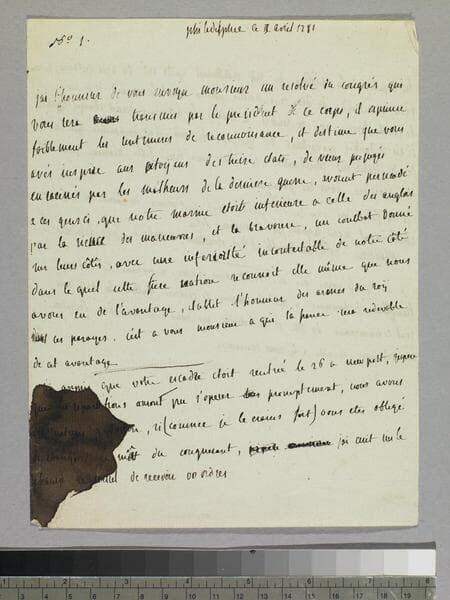 philadelphie ce 11 avril 1781
No 1.
j'ai l'honneur de vous envoyer monsieur un resolvé du congrès qui
vous sera transmis par le president de ce corps, il exprime
foiblement les sentimens de reconnoissance, et d'estime que vous
avés inspiré aux citoyens des treize etats, de vieux prejugés
enracinés par les malheurs de la derniere guerre, avoient persuadé
a ces gens ci, que notre marine etoit inferieure a celle des anglois
par la des manœuvres, et la bravoure, un combat donné
sur leurs côtes, avec une inferiorité incontestable de notre côté
dans le quel cette fiere nation reconnoit elle même que nous
avons eu de l'avantage, etablit l'honneur des armes du roy
dans ces parages. c'est a vous monsieur a qui la france sera redevable
de cet avantage
que votre escadre etoit rentrée le 26 a newport, j'espere
que les reparations auront pu s'operer promptement, nous avons
si (comme je le crains fort) vous etes obligé
de du conquerant, j'ai ecrit
de recevoir vos ordres